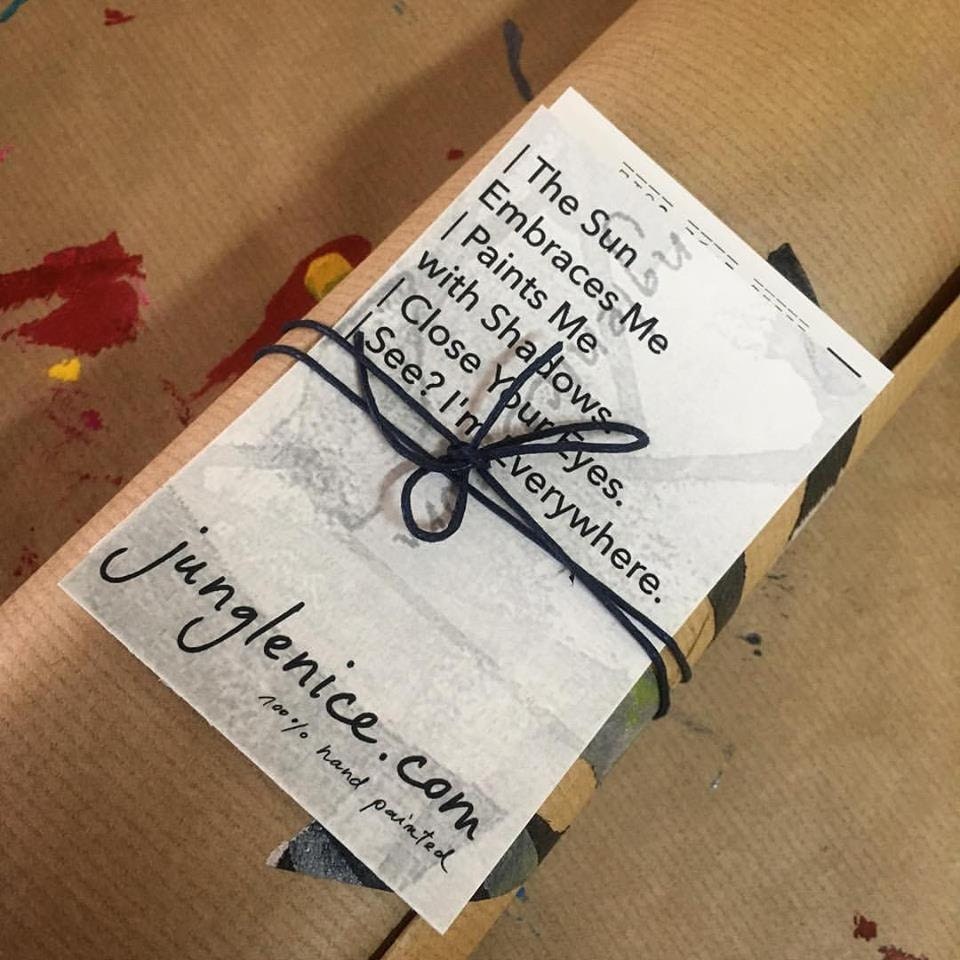 | The Sun
Embraces Me
| Paints Me
with Shadows.
| Close Your Eyes.
| See? I'm Everywhere.
junglenice.com
100% hand painted